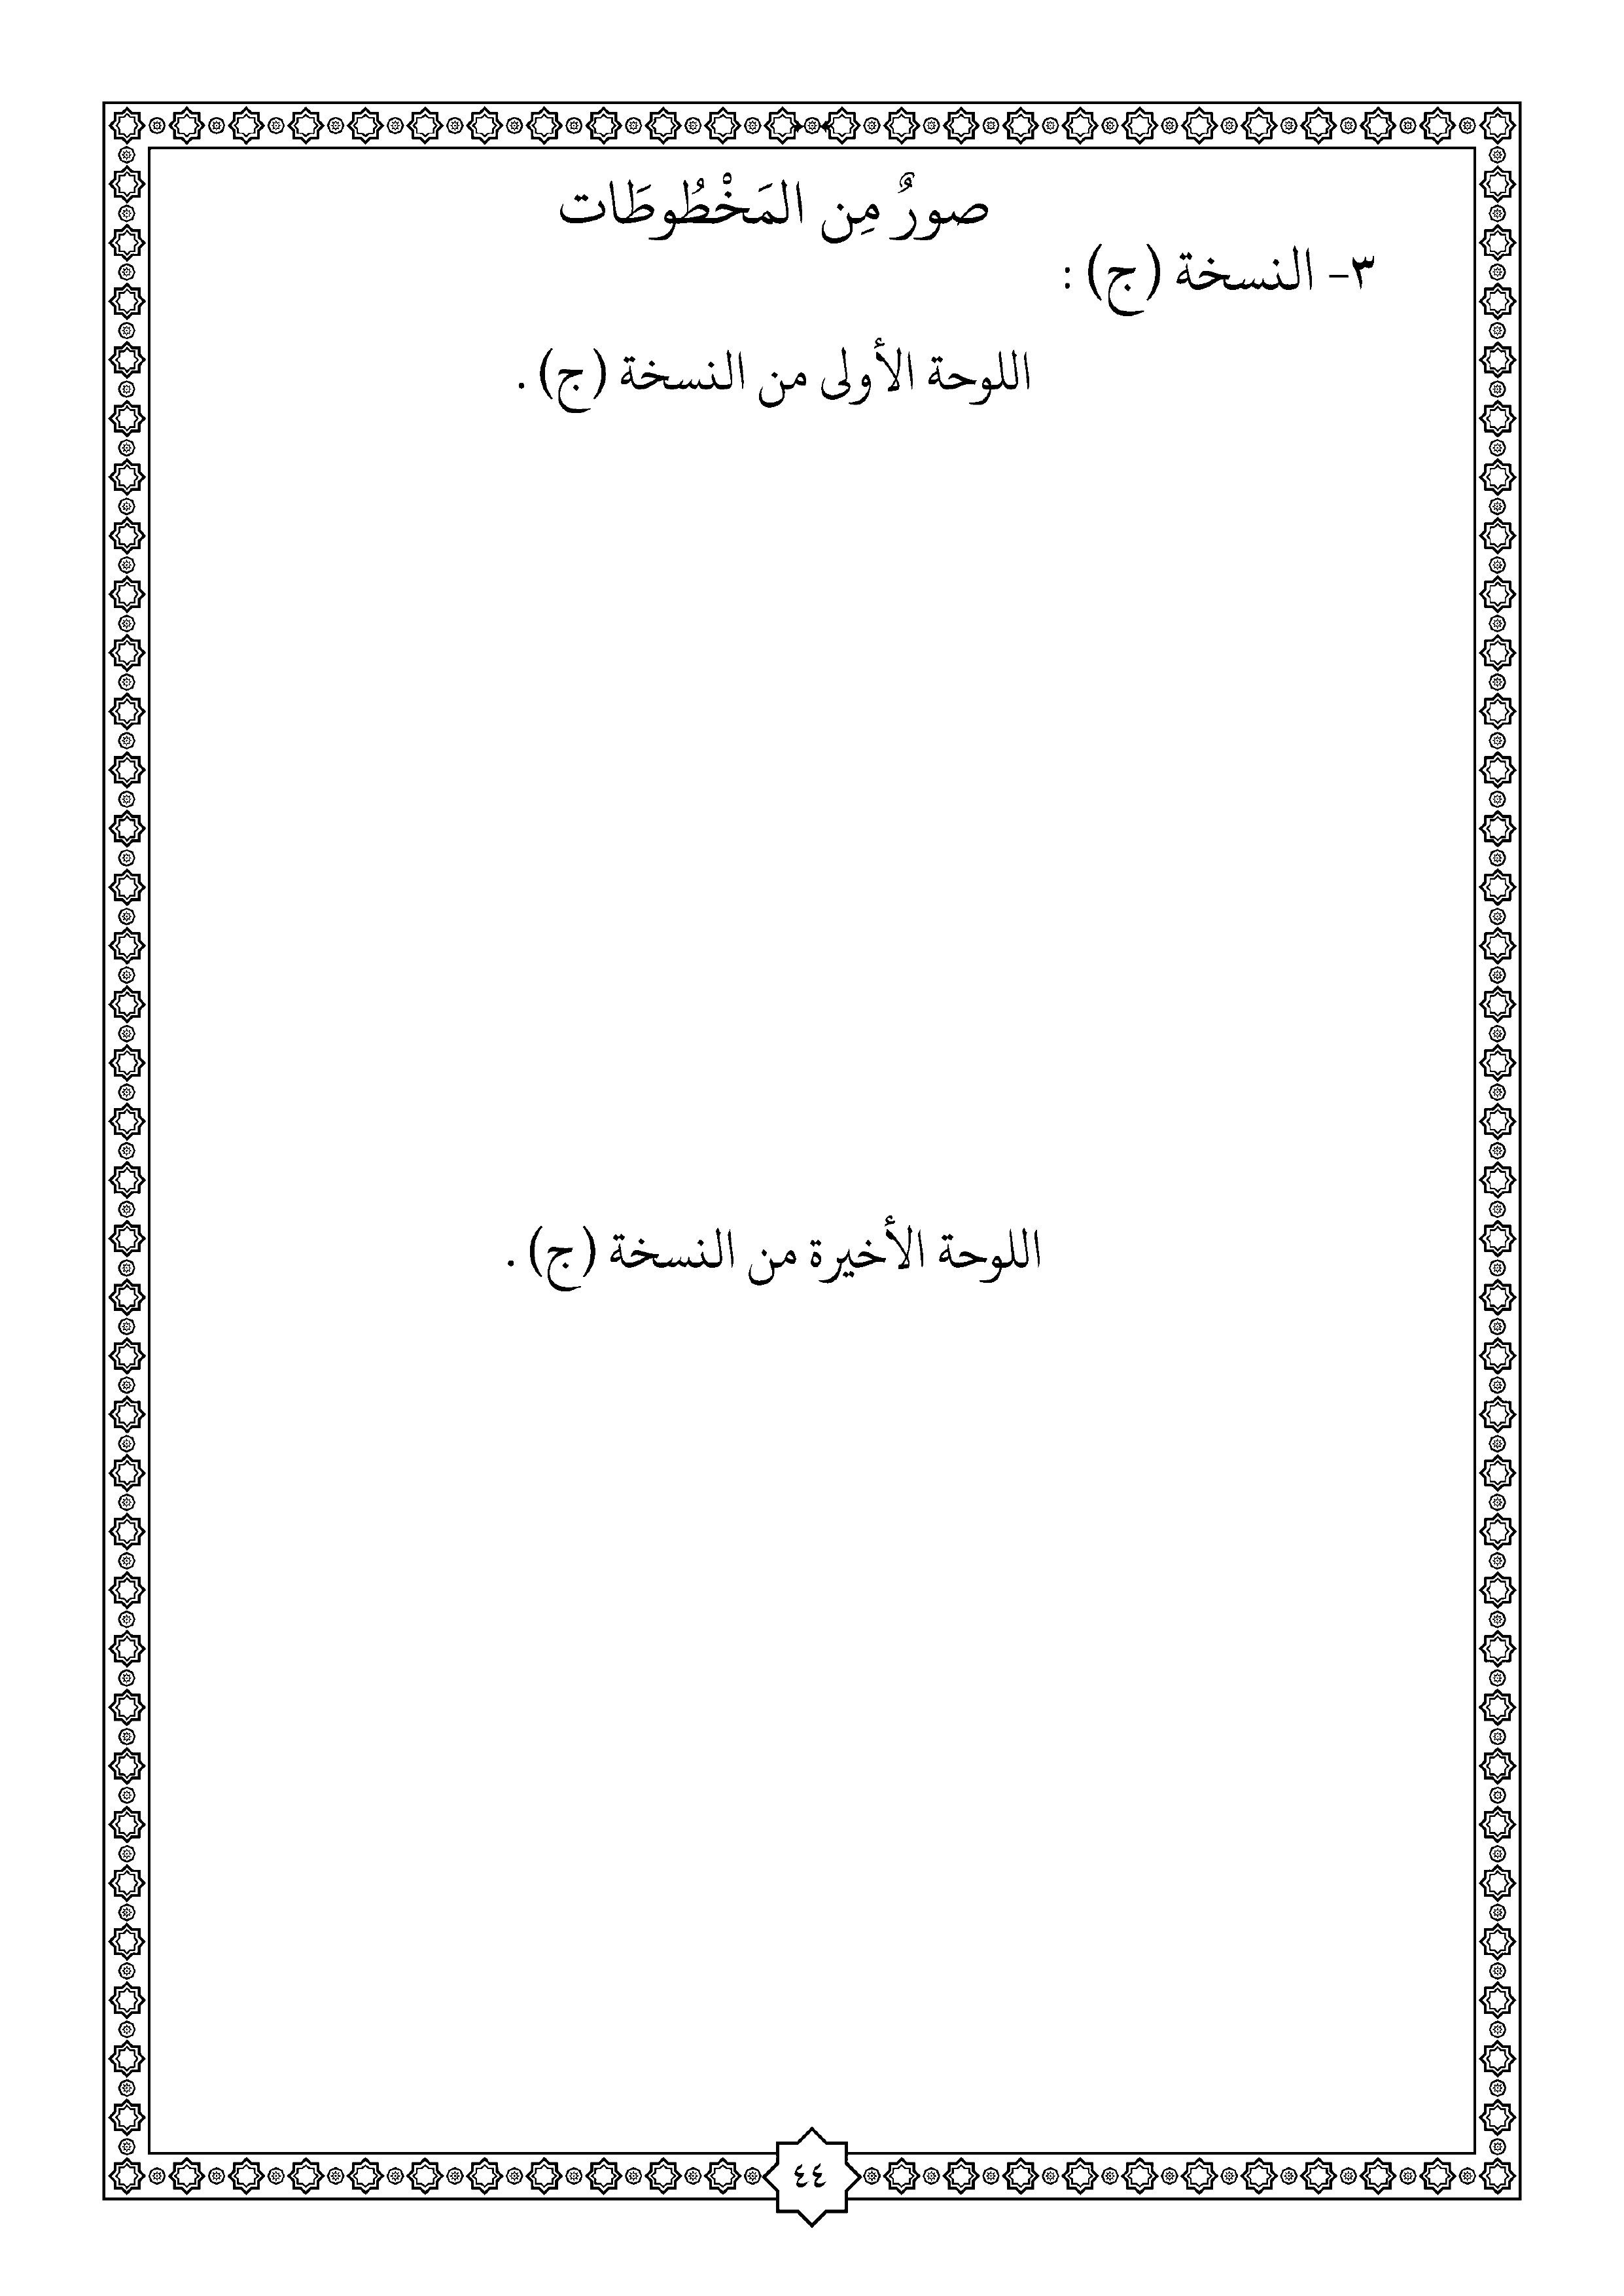 صورٌ مِن المَخْطُوطَات
٣- النسخة (ج) :
اللوحة الأولى من النسخة (ج) .
اللوحة الأخيرة من النسخة (ج) .
٤٤